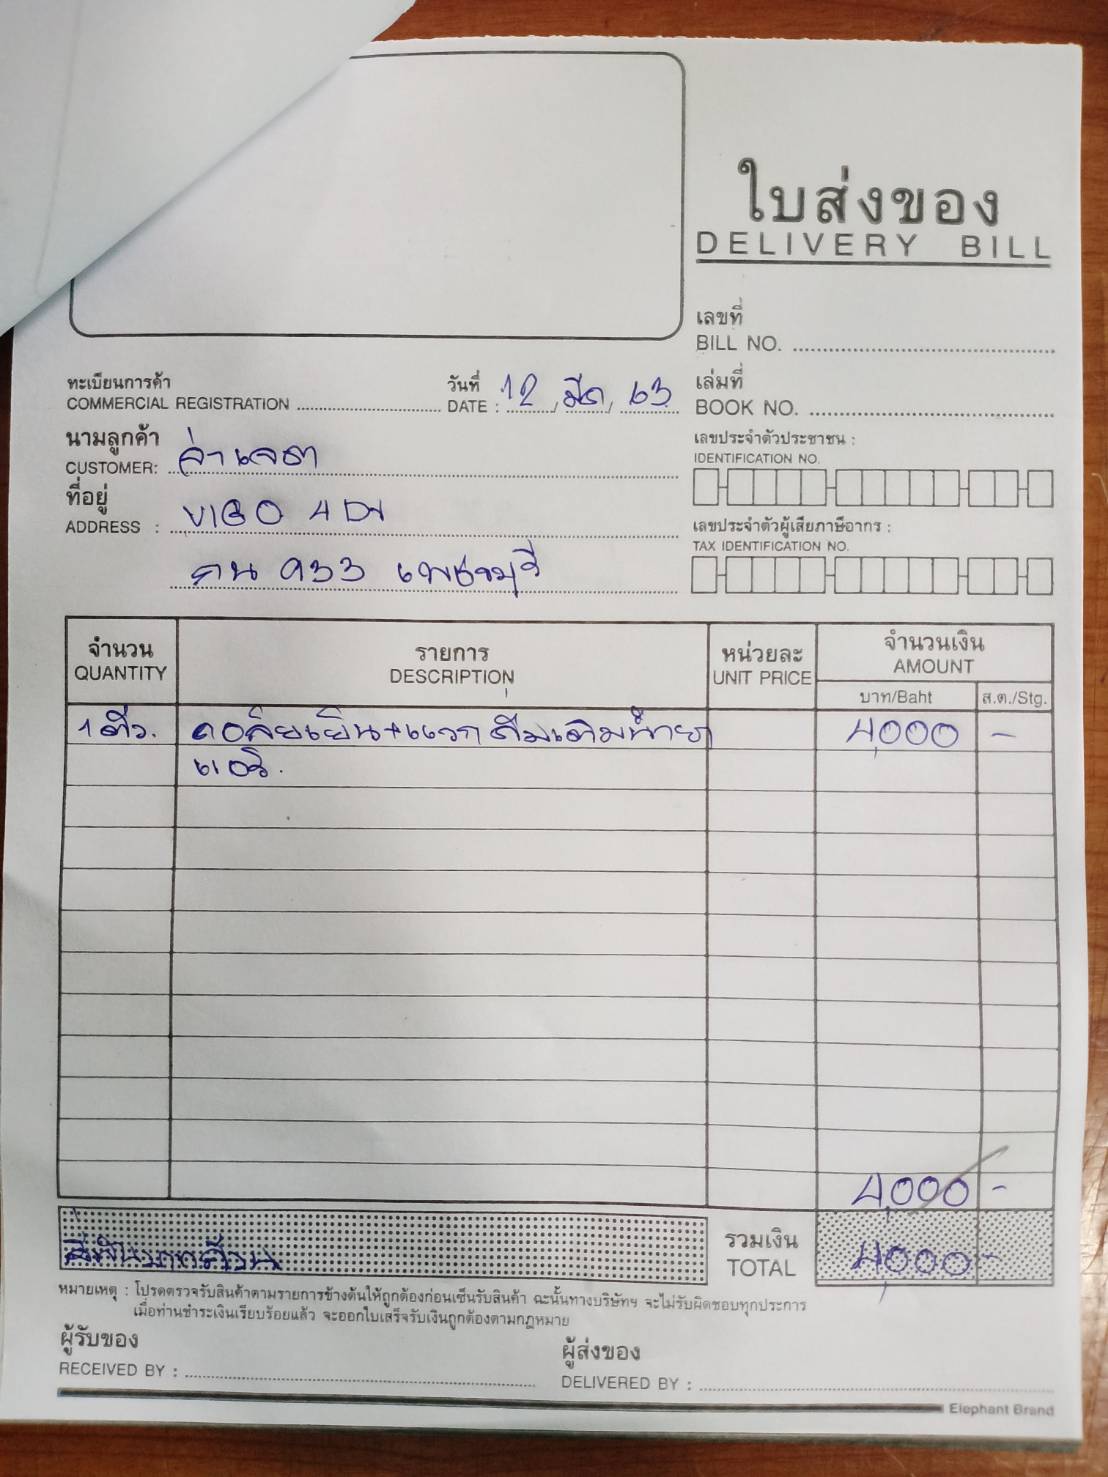 ใบส่งของ
DELIVERY BILL
เลขที่
BILL NO.
ทะเบียนการค้า
COMMERCIAL REGISTRATION
วันที่ 12 มีค 63
DATE :
เล่มที่
BOOK NO.
นามลูกค้า
CUSTOMER:
เลขประจำตัวประชาชน :
IDENTIFICATION NO.
ที่อยู่
ADDRESS : VIGO 4 DW
เลขประจำตัวผู้เสียภาษีอากร :
TAX IDENTIFICATION NO.
กน 933 เพชรบุรี
จำนวน รายการ หน่วยละ จำนวนเงิน
QUANTITY DESCRIPTION UNIT PRICE AMOUNT
บาท/Baht ส.ต./Stg.
1 ตัว. คอล์ยเย็น+แวก เติมน้ำยา 4,000 -
แอร์.
4,000 -
สี่พันบาทถ้วน
รวมเงิน
TOTAL 4,000 -
หมายเหตุ : โปรดตรวจรับสินค้าตามรายการข้างต้นให้ถูกต้องก่อนเซ็นรับสินค้า ฉะนั้นทางบริษัทฯ จะไม่รับผิดชอบทุกประการ
เมื่อท่านชำระเงินเรียบร้อยแล้ว จะออกใบเสร็จรับเงินถูกต้องตามกฎหมาย
ผู้รับของ
RECEIVED BY :
ผู้ส่งของ
DELIVERED BY :
Elephant Brand